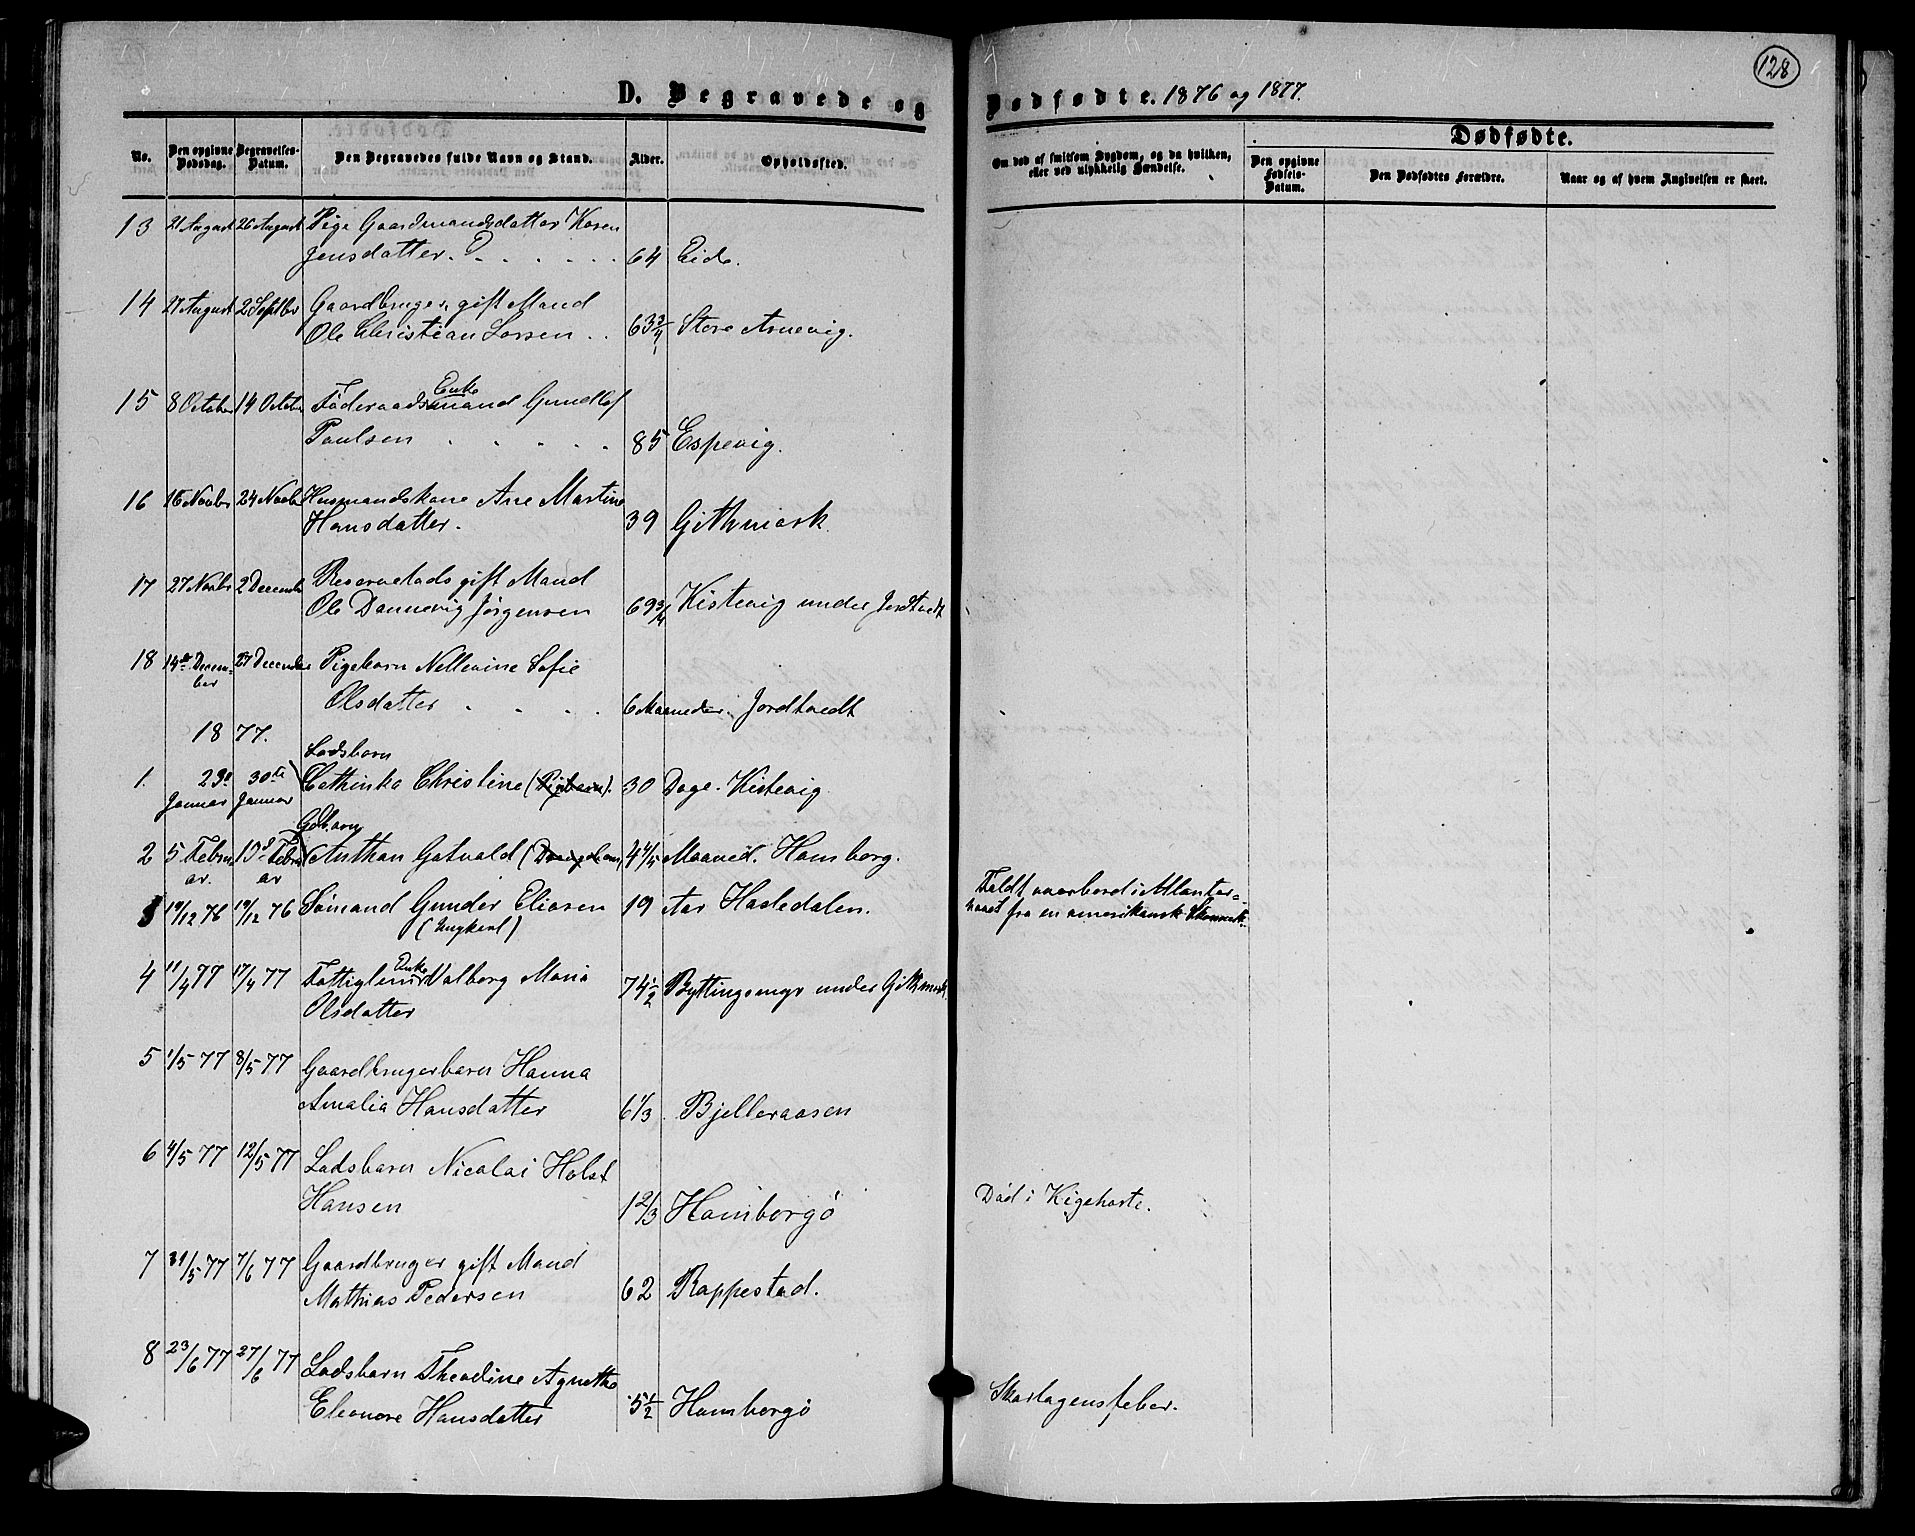 128
D. Begravede og Dødfødte. 1876 og 1877.
Dødfødte.
No.
Den opgivne Dødsdag.
Begravelses-Datum.
Den Begravedes fulde Navn og Stand.
Alder.
Opholdssted.
Om død af smitsom Sygdom, og da hvilken, eller ved ulykkelig Hændelse.
Den opgivne Fødsels-Datum.
Den Dødfødtes Forældre.
Naar og af hvem Angivelsen er skeet.
13 21 August 26 August Pige Gaardmandsdatter Karen
Jensdatter. 64 Eide.
14 27 August 2 Septbr Gaardbruger, gift Mand
Ole Christian Larsen .. 63 3/4 Store Arnevig.
Enke
15 8 October 14 October Føderaadsmand Gundlef
Paulsen 85 Espevig.
16 16 Novbr 24 Novbr Husmandskone Ane Martine
Hansdatter. 39 Githmark.
17 27 Novbr 2 December Reservelods gift Mand
Ole Dannevig Jørgensen 69 3/4 Kistevig under Jordtvedt
18 14de Decem- 27 December Pigebarn Nellevine Sofie
ber
Olsdatter 6 Maaneder. Jordtvedt
1877.
Lodsbarn
1. 29de 30te Cathinka Christine (Pigebarn). 30 Dage. Kistevig.
Januar Januar
Gdb.barn
2 5 Febru 10de Febru Anthon Gotvald (Drengebarn) 4 4/5 Maaned. Hamborg.
ar. ar
3 19/12 76 19/12 76 Sømand Gunder Eliasen 19 Aar Hasledalen. Faldt overbord i Atlanter-
(Ungkarl) havet fra en amerikansk
Enke
4 11/4 77 17/4 77 Fattiglem Valborg Maria
Olsdatter 74 1/2 Byttingsmyr under Githmark.
5 1/5 77 8/5 77 Gaardbrugerbarn Hanna
Amalia Hansdatter 6 1/3 Bjelleraasen
6 4/5 77 12/5 77 Lodsbarn Nicolai Holst
Hansen 1 2/3 Hamborgø Død i Kigehoste.
7 31/5 77 7/6 77 Gaardbruger gift Mand
Mathias Pedersen 62 Rappestad.
8 23/6 77 27/6 77 Lodsbarn Theodine Agnethe
Eleonore Hansdatter 5 1/2 Hamborgø Skarlagensfeber.